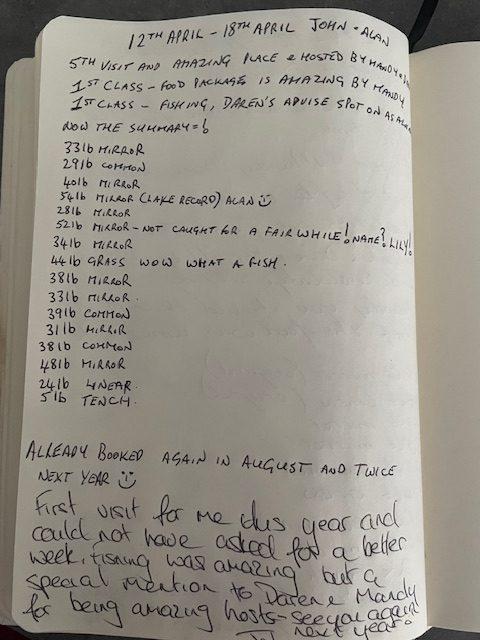 12TH APRIL - 18TH APRIL JOHN + ALAN
5TH VISIT AND AMAZING PLACE & HOSTED BY MANDY &
1ST CLASS - FOOD PACKAGE IS AMAZING BY MANDY
1ST CLASS - FISHING, DAREN'S ADVISE SPOT ON AS
NOW THE SUMMARY =
33lb MIRROR
29lb COMMON
40lb MIRROR
54lb MIRROR (LAKE RECORD) ALAN ☺
28lb MIRROR
52lb MIRROR - NOT CAUGHT FOR A FAIR WHILE! NAME? LILY!
34lb MIRROR
44lb GRASS WOW WHAT A FISH.
38lb MIRROR
33lb MIRROR.
39lb COMMON
31lb MIRROR
38lb COMMON
48lb MIRROR
24lb LINEAR.
5lb TENCH.
ALREADY BOOKED AGAIN IN AUGUST AND TWICE
NEXT YEAR ☺
First visit for me this year and
could not have asked for a better
week. Fishing was amazing but a
special mention to Daren & Mandy
for being amazing hosts - see you again
next year!